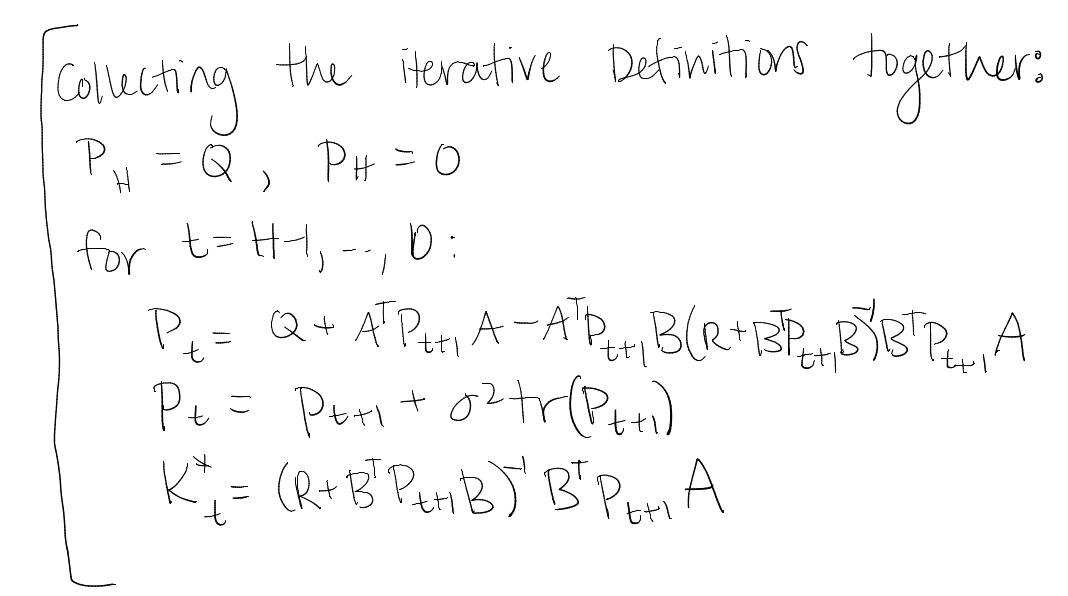 Collecting the iterative Definitions together:
P_H = Q, p_H = 0
for t = H-1, --, 0:
P_t = Q + A^T P_{t+1} A - A^T P_{t+1} B (R + B^T P_{t+1} B)^{-1} B^T P_{t+1} A
p_t = p_{t+1} + σ^2 tr(P_{t+1})
K^*_t = (R + B^T P_{t+1} B)^{-1} B^T P_{t+1} A